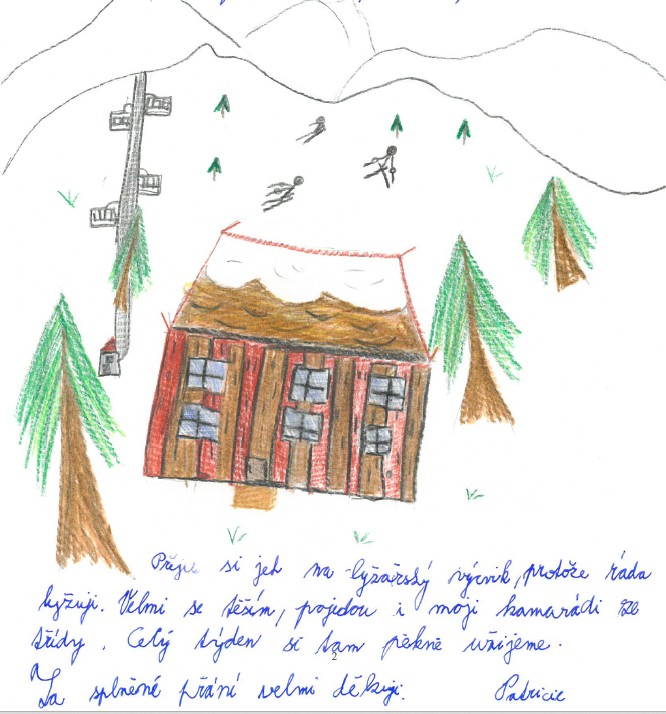 Přeju si jet na lyžařský výcvik, protože ráda
lyžuji. Velmi se těším, pojedou i moji kamarádi ze
třídy. Celý týden si tam pěkně užijeme.
2
Za splněné přání velmi děkuji. Patricie